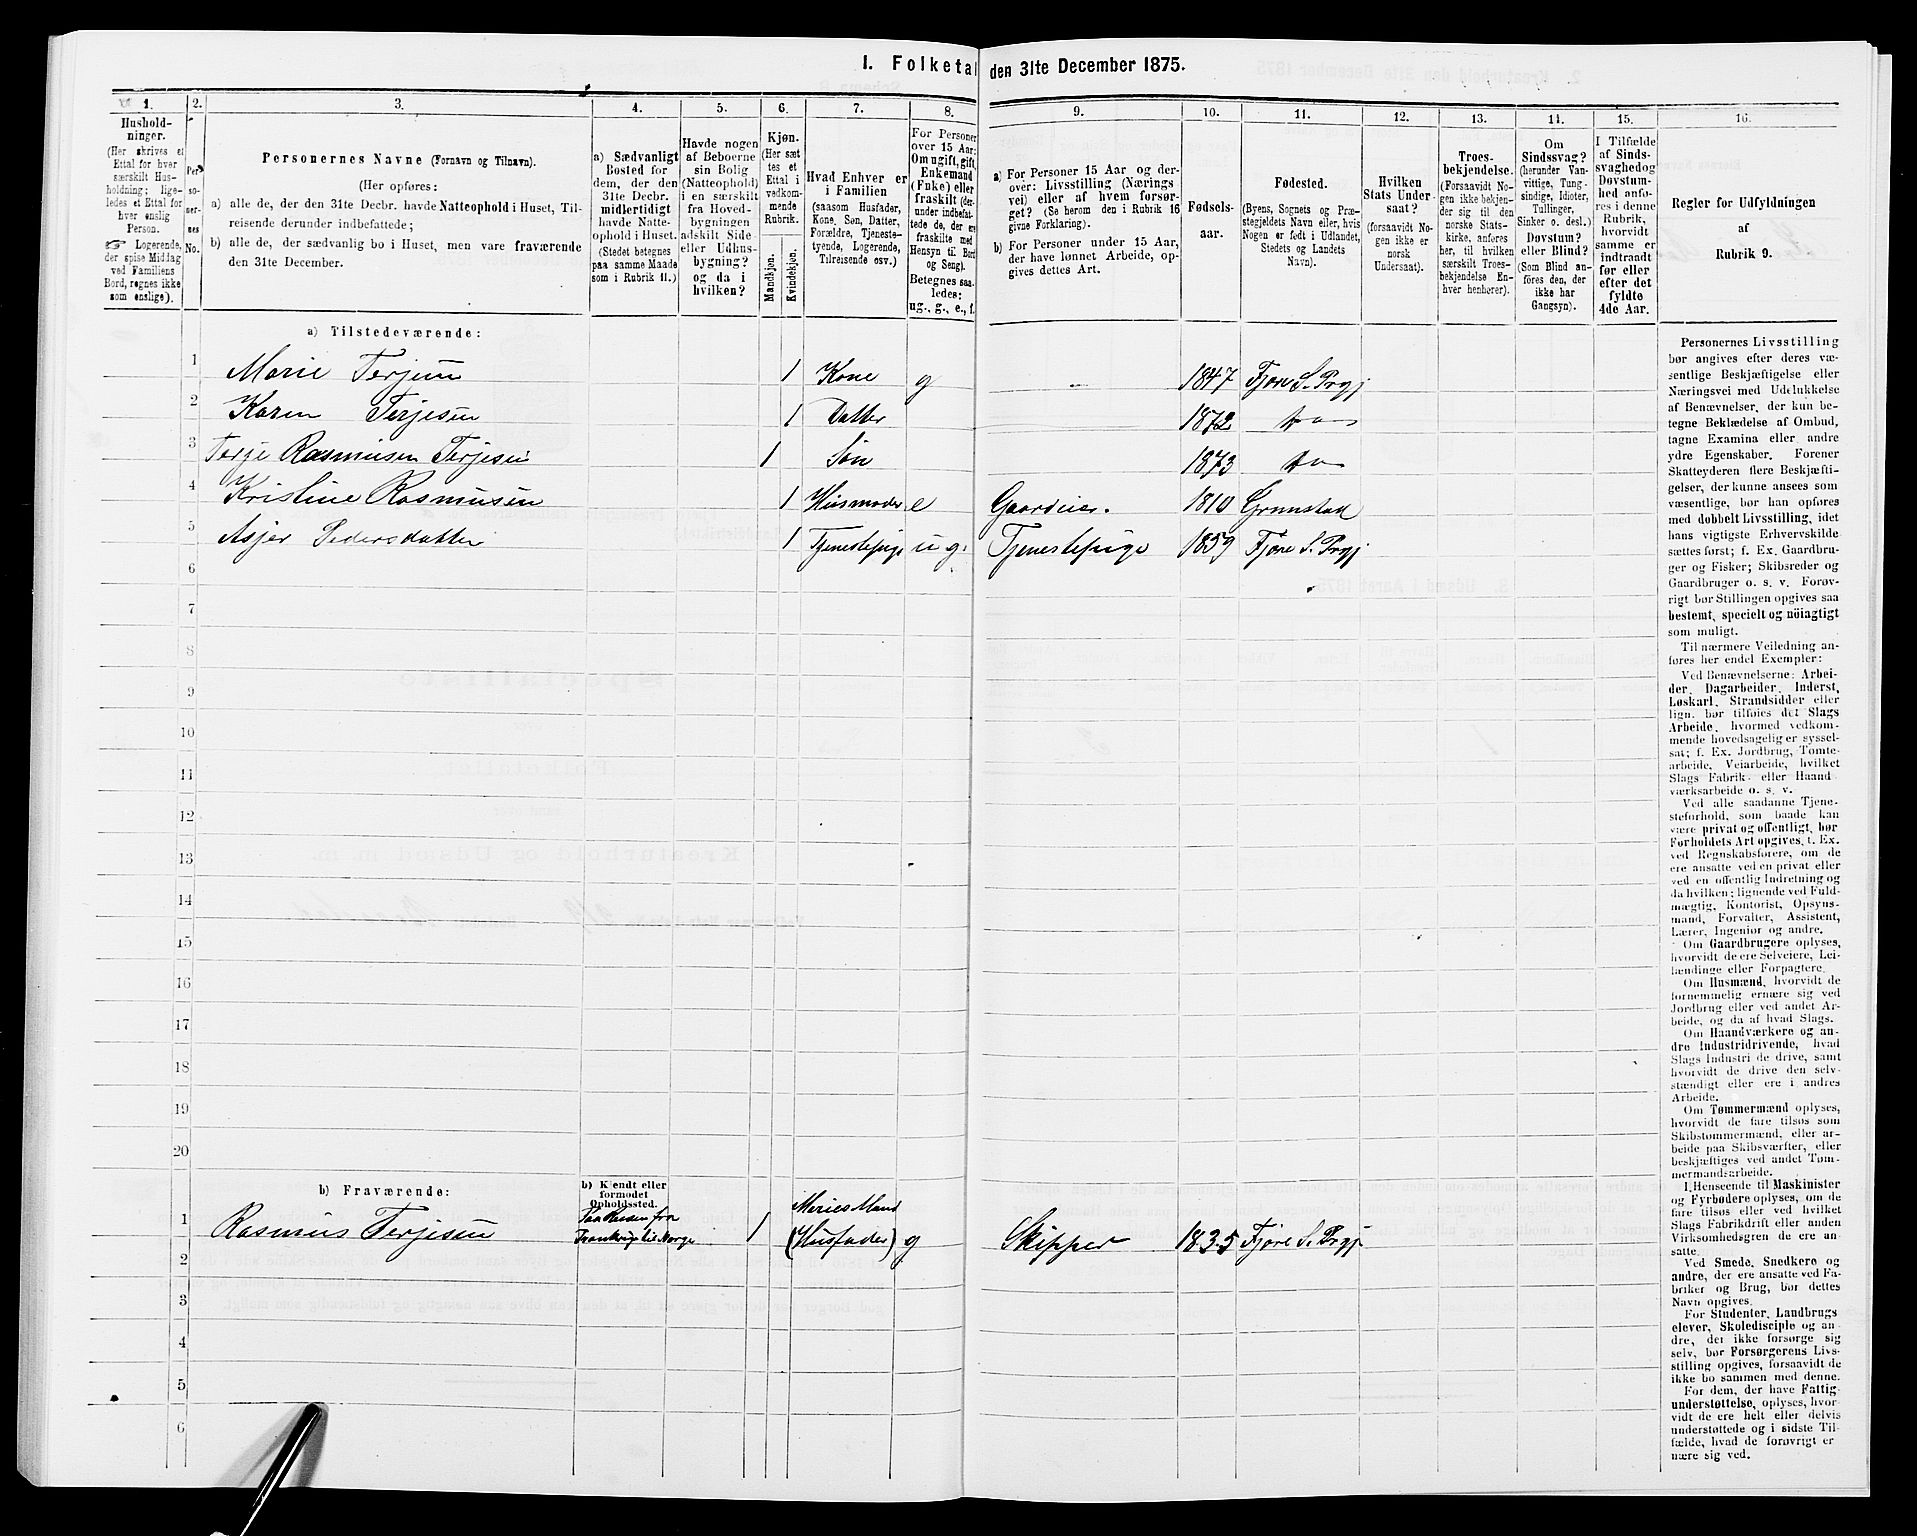 I. Folketal den 31te December 1875.
1. 2. 3. 4. 5. 6. 7. 8. 9. 10. 11. 12. 13. 14. 15. 16.
Hushold-
ninger.
(Her skrives et
Ettal for hver
særskilt Hus-
holdning; lige-
ledes et Ettal for
hver enslig
Person.
☞ Logerende,
der spise Middag
ved Familiens
Bord, regnes ikke
som enslige).
Per-
so-
ner-
nes
No.
Personernes Navne (Fornavn og Tilnavn).
(Her opføres:
a) alle de, der den 31te Decbr. havde Natteophold i Huset, Til-
reisende derunder indbefattede;
b) alle de, der sædvanlig bo i Huset, men vare fraværende
den 31te December.
a) Sædvanligt
Bosted for
dem, der den
31te Decbr.
midlertidigt
havde Natte-
ophold i Huset.
(Stedet betegnes
paa samme Maade
som i Rubrik 11.)
Havde nogen
af Beboerne
sin Bolig
(Natteophold)
i en særskilt
fra Hoved-
bygningen
adskilt Side-
eller Udhus-
bygning?
og da i
hvilken?
Kjøn.
(Her sæt
tes et
Ettal i
vedkom-
mende
Rubrik.
Mandkjøn.
Kvindekjøn.
Hvad Enhver er
i Familien
(saasom Husfader,
Kone, Søn, Datter,
Forældre, Tjeneste-
tyende, Logerende,
Tilreisende osv.)
For Personer
over 15 Aar:
Om ugift, gift,
Enkemand
(Enke) eller
fraskilt (der-
under indbefat-
tede de, der ere
fraskilte med
Hensyn til Bord
og Seng).
Betegnes saa-
ledes:
ug., g., e., f.
a) For Personer 15 Aar og der-
over: Livsstilling (Nærings
vei) eller af hvem forsør-
get? (Se herom den i Rubrik 16
givne Forklaring).
b) For Personer under 15 Aar,
der have lønnet Arbeide, op-
gives dettes Art.
Fødsels-
aar.
Fødested.
(Byens, Sognets og Præ-
stegjeldets Navn eller, hvis
Nogen er født i Udlandet,
Stedets og Landets
Navn).
Hvilken
Stats Under-
saat?
(forsaavidt No-
gen ikke er
norsk
Undersaat).
Troes-
bekjendelse.
(Forsaavidt No-
gen ikke bekjen-
der sig til den
norske Stats-
kirke, anføres
her, til hvilken
særskilt Troes-
bekjendelse En-
hver henhører).
Om
Sindssvag?
(herunder Van-
vittige, Tung-
sindige, Idioter,
Tullinger,
Sinker o. desl.)
Døvstum?
eller Blind?
(Som Blind an-
føres den, der
ikke har
Gangsyn).
I Tilfælde
af Sinds-
svaghed og
Døvstum-
hed anfø-
res i denne
Rubrik,
hvorvidt
samme er
indtraadt
før eller
efter det
fyldte
4de Aar.
Regler for Udfyldningen
af
Rubrik 9.
a) Tilstedeværende:
1 Marie Terjesen 1 Kone g - 1847 Fjære S. Prgj
2 Karen Terjesen 1 Datter 1872 do
3 Terje Rasmusen Terjesen 1 Søn 1873 do
4 Kristine Rasmusen 1 Husmoder e Gaardeier. 1810 Grimstad
5 Asjer Pedersdatter 1 Tjenestepige ug. Tjenestepige 1859 Fjære S. Prgj
6
7
8
9
10
11
12
13
14
15
16
17
18
19
20
b) Fraværende:
b) Kjendt eller
formodet
Opholdssted.
1 Rasmus Terjesen Paa Reisen fra Frankrig til Norge 1 Maries Mand (Husfader) g Skipper 1835 Fjære S. Prgj
2
3
4
5
6
Personernes Livsstilling
bør angives efter deres væ-
sentlige Beskjæftigelse eller
Næringsvei med Udelukkelse
af Benævnelser, der kun be-
tegne Beklædelse af Ombud,
tagne Examina eller andre
ydre Egenskaber. Forener
Skatteyderen flere Beskjæfti-
gelser, der kunne ansees som
væsentlige, bør han opføres
med dobbelt Livsstilling, idet
hans vigtigste Erhvervskilde
sættes først; f. Ex. Gaardbru-
ger og Fisker; Skibsreder og
Gaardbruger o. s. v. Forøv-
rigt bør Stillingen opgives saa
bestemt, specielt og nøiagtigt
som muligt.
Til nærmere Veiledning an-
føres her endel Exempler:
Ved Benævnelserne: Arbei-
der, Dagarbeider, Inderst,
Løskarl, Strandsidder eller
lign. bør tilføies det Slags
Arbeide, hvormed vedkom-
mende hovedsagelig er syssel-
sat; f. Ex. Jordbrug, Tomte-
arbeide, Veiarbeide, hvilket
Slags Fabrik- eller Haand-
værksarbeide o. s. v.
Ved alle saadanne Tjene-
steforhold, som baade kan
være privat og offentligt, bør
Forholdets Art opgives, t. Ex.
ved Regnskabsførere, om de
ere ansatte ved en privat eller
ved en offentlig Indretning og
da hvilken; lignende ved Fuld-
mægtig, Kontorist, Opsyns-
mand, Forvalter, Assistent,
Lærer, Ingeniør og andre.
Om Gaardbrugere oplyses,
hvorvidt de ere Selveiere, Lei-
lændinge eller Forpagtere.
Om Husmænd, hvorvidt de
fornemmelig ernære sig ved
Jordbrug eller ved andet Ar-
beide, og da af hvad Slags.
Om Haandværkere og an-
dre Industridrivende, hvad
Slags Industri de drive, samt
hvorvidt de drive den selv-
stændigt eller ere i andres
Arbeide.
Om Tømmermænd oplyses,
hvorvidt de fare tilsøs som
Skibstømmermænd, eller ar-
beide paa Skibsværfter, eller
beskjæftiges ved andet Tøm-
mermandsarbeide.
I Henseende til Maskinister
og Fyrbødere oplyses, om de
fare tilsøs eller ved hvilket
Slags Fabrikdrift eller anden
Virksomhedsgren de ere an-
satte.
Ved Smede, Snedkere og
andre, der ere ansatte ved Fa-
briker og Brug, bør dettes
Navn opgives.
For Studenter, Landbrugs-
elever, Skoledisciple og an-
dre, der ikke forsørge sig
selv, bør Forsørgerens Livs-
stilling opgives, forsaavidt de
ikke bo sammen med denne.
For dem, der have Fattig-
understøttelse, oplyses, hvor-
vidt de ere helt eller delvis
understøttede og i sidste Til-
fælde, hvad de forøvrigt er
nære sig ved.